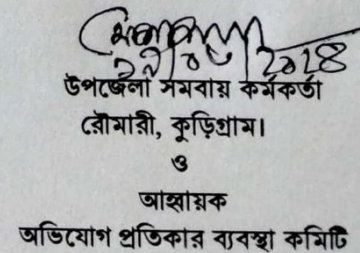 উপজেলা সমবায় কর্মকর্তা
রৌমারী, কুড়িগ্রাম।
ও
আহ্বায়ক
অভিযোগ প্রতিকার ব্যবস্থা কমিটি